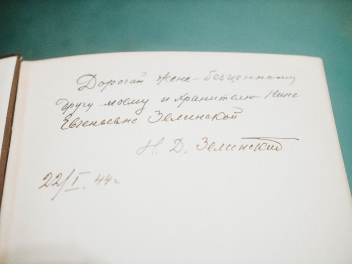 Дорогой жене - бесценному
другу моему и хранителю Нине
Евгеньевне Зелинской
Н. Д. Зелинский
22/I 44 г.